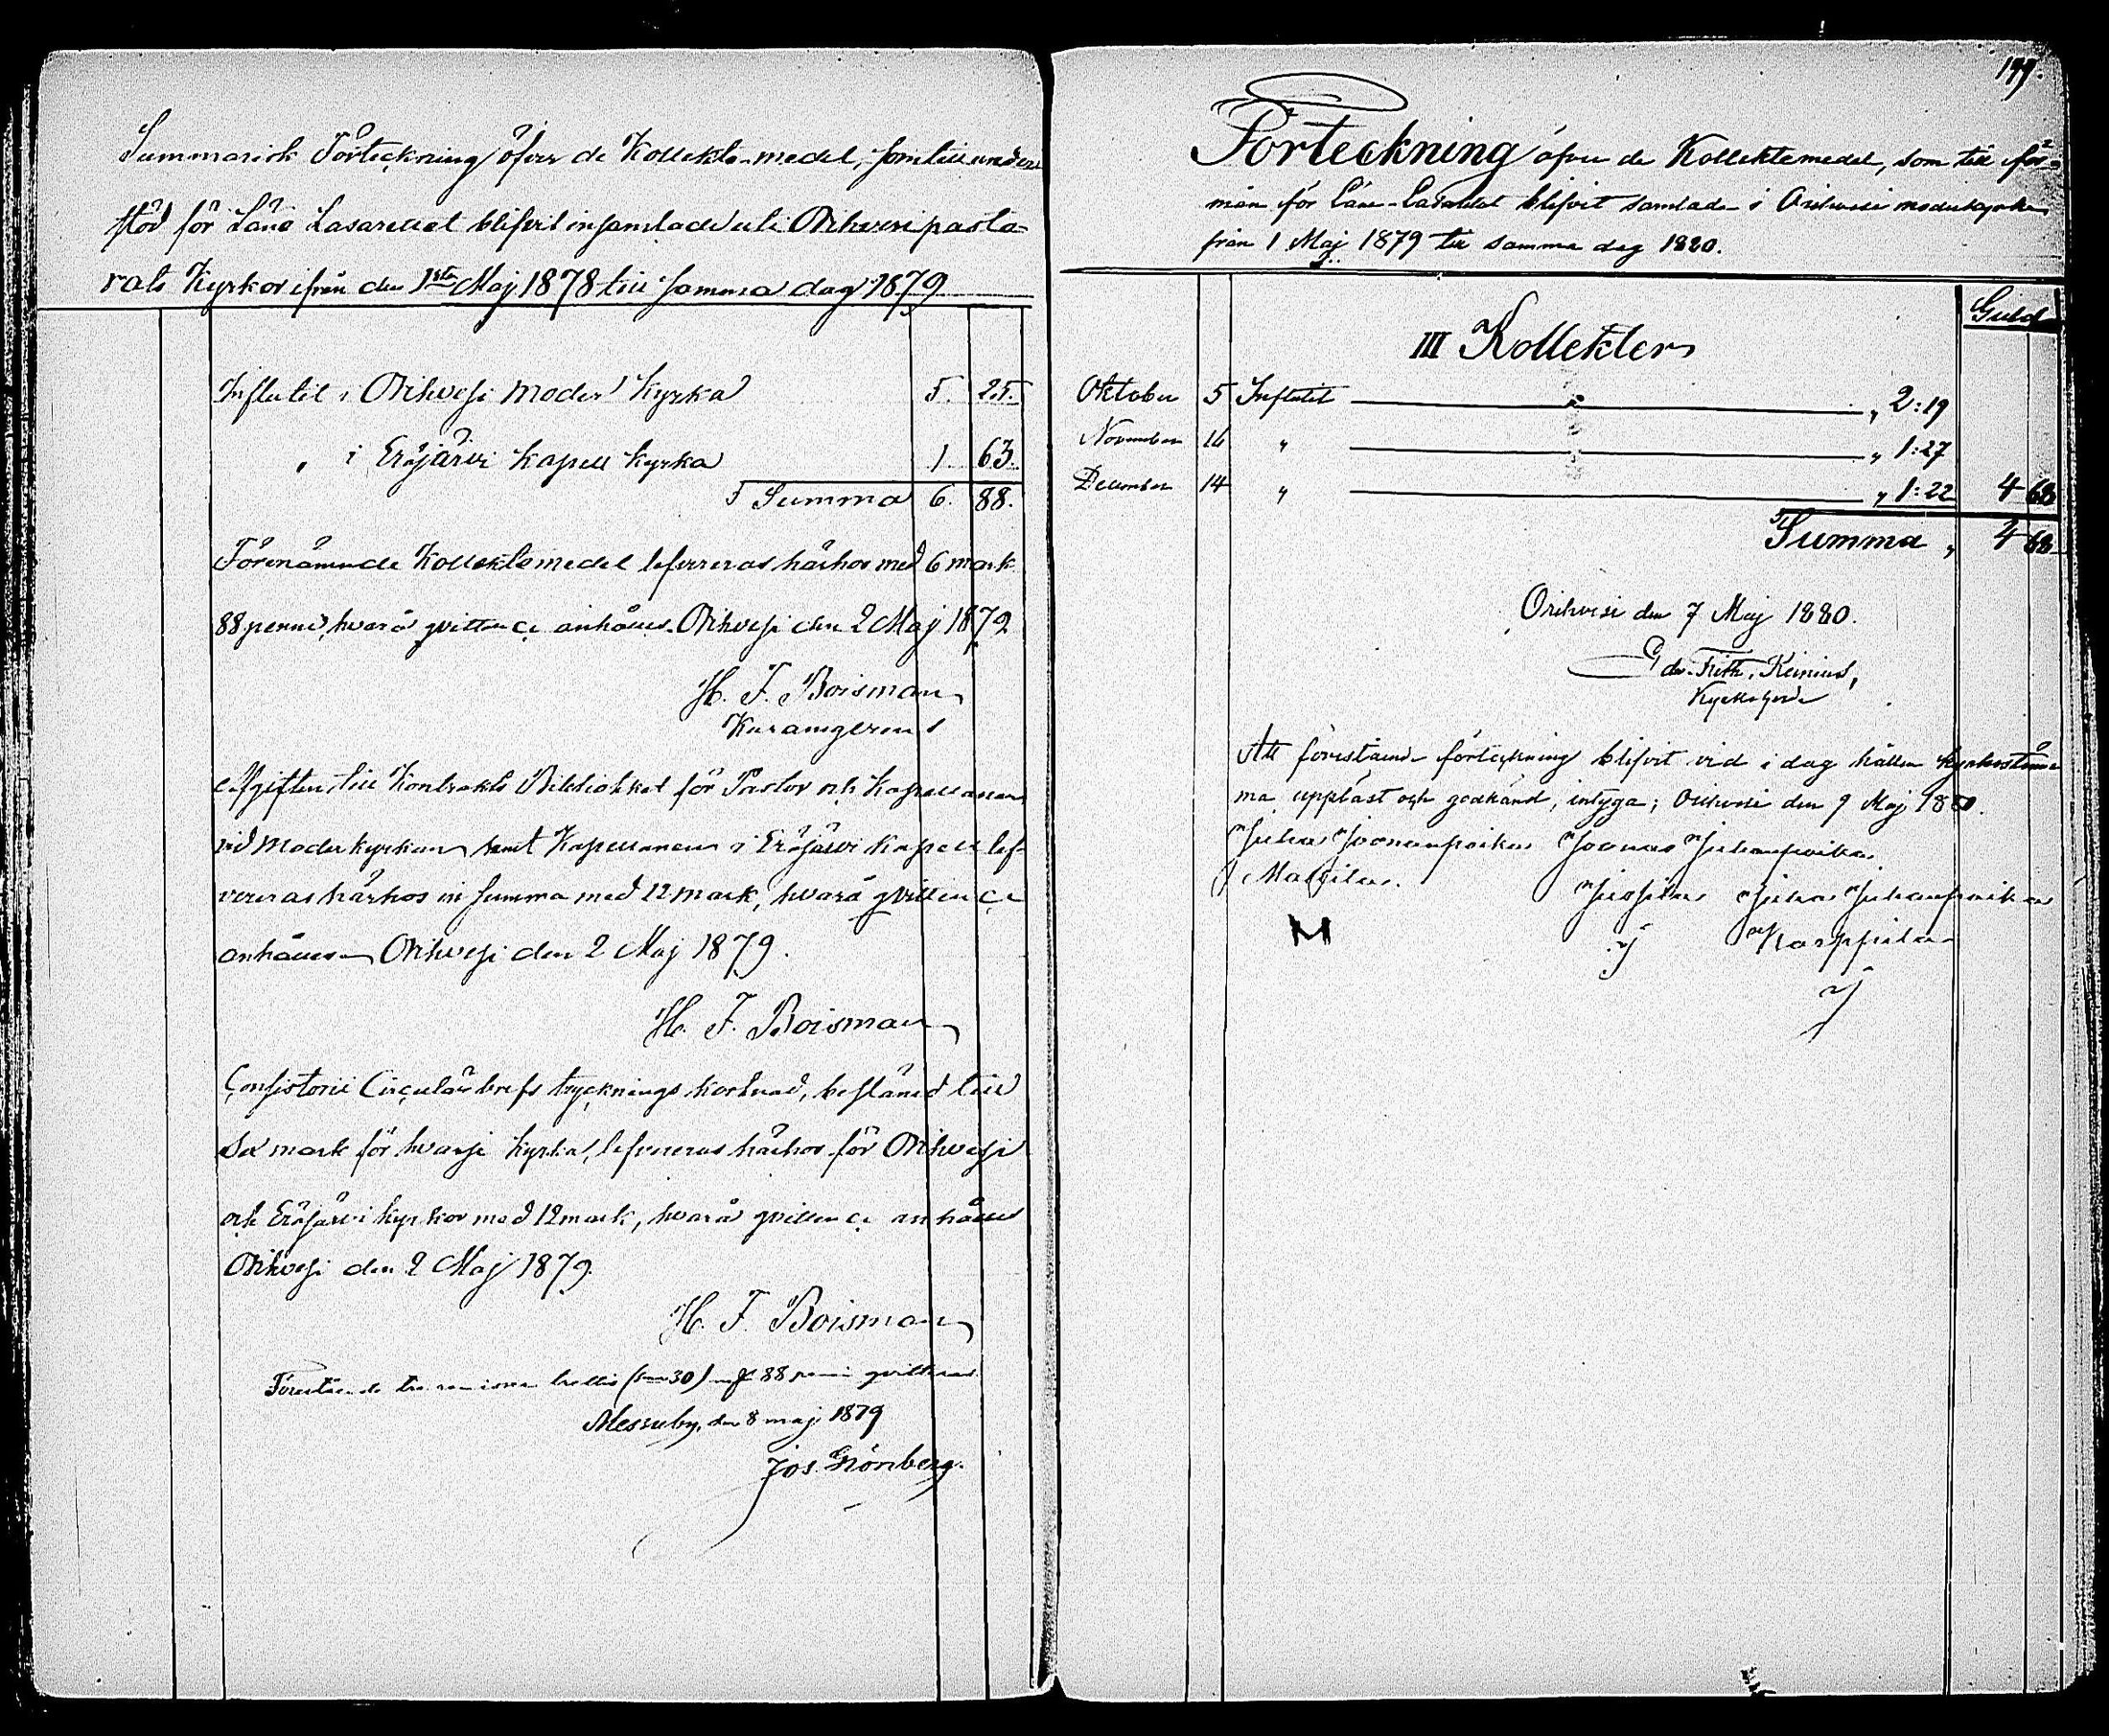 Summarisk Förteckning öfver de Kollekts-medel, som till under-
stöd för Läns Lasarettet blifvit insamlade uti Orihvesi pasto-
rats Kyrkor ifrån den 1sta Maj 1878 till samma dag 1879
Influtit i Orihvesi Moder Kyrka 5. 25.
" i Eräjärvi Kapell Kyrka 1. 63.
Summa 6. 88.
Förenämnde Kollektsmedel lefvereras härhos med 6 mark
88 penni, hvarå qvittence anhålles. Orihvesi den 2 Maj 1879
H. F. Boisman
Afgiften till Kontrakts Bibliotheket för Pastor och Kapellanen
vid Moderkyrkan samt Kapellanen i Eräjärvi Kapell lef-
vereras härhos in summa med 12 mark, hvarå qvittence
anhålles. Orihvesi den 2 Maj 1879.
H. F. Boisman
Consistorii Circulär brefs trycknings kostnad, bestånd till
Sex mark för hvarje Kyrka, lefvereras härhos för Orihvesi
och Eräjärvi Kyrkor med 12 mark, hvarå qvittence anhålles
Orihvesi den 2 Maj 1879.
H. F. Boisman
Förestående tre summor trettio (30) mf 88 penni qvitteras
Messuby, den 8 maj 1879
Jos. Grönberg.
199.
Förteckning öfver de Kollektsmedel, som till för-
mån för Läns-Lasarettet blifvit samlade i Orihvesi moderkyrka
från 1 Maj 1879 till samma dag 1880.
Guld
III Kollekter
Oktober 5 Influtit " 2:19
November 16 " " 1:27
December 14 " " 1:22 4 68
Summa " 4 68
Orihvesi den 7 Maj 1880.
Kyrkoherde
Att förestående förteckning blifvit vid i dag hållen kyrkostäm-
ma uppläst och godkänd, intyga; Orihvesi den 9 Maj 1880.
Juha Joonanpoika Joonas Juhanpoika
Mattila. Jussila Juha Juhanpoika
M